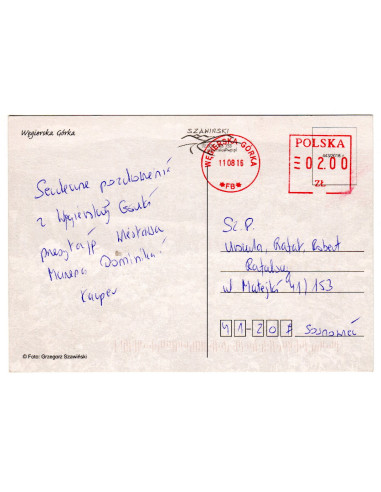 Węgierska Górka
SZAWIŃSKI
WĘGIERSKA GÓRKA
11 08 16
*FB*
POLSKA
=02.00
ZŁ
Serdeczne pozdrowienia
z Węgierskiej Górki
przesyłają
Marena Dominika
Kacper
Sz. P.
Urszula, Rafał, Robert
ul Matejki 41/153
41-20
Sosnowiec
© Foto: Grzegorz Szawiński